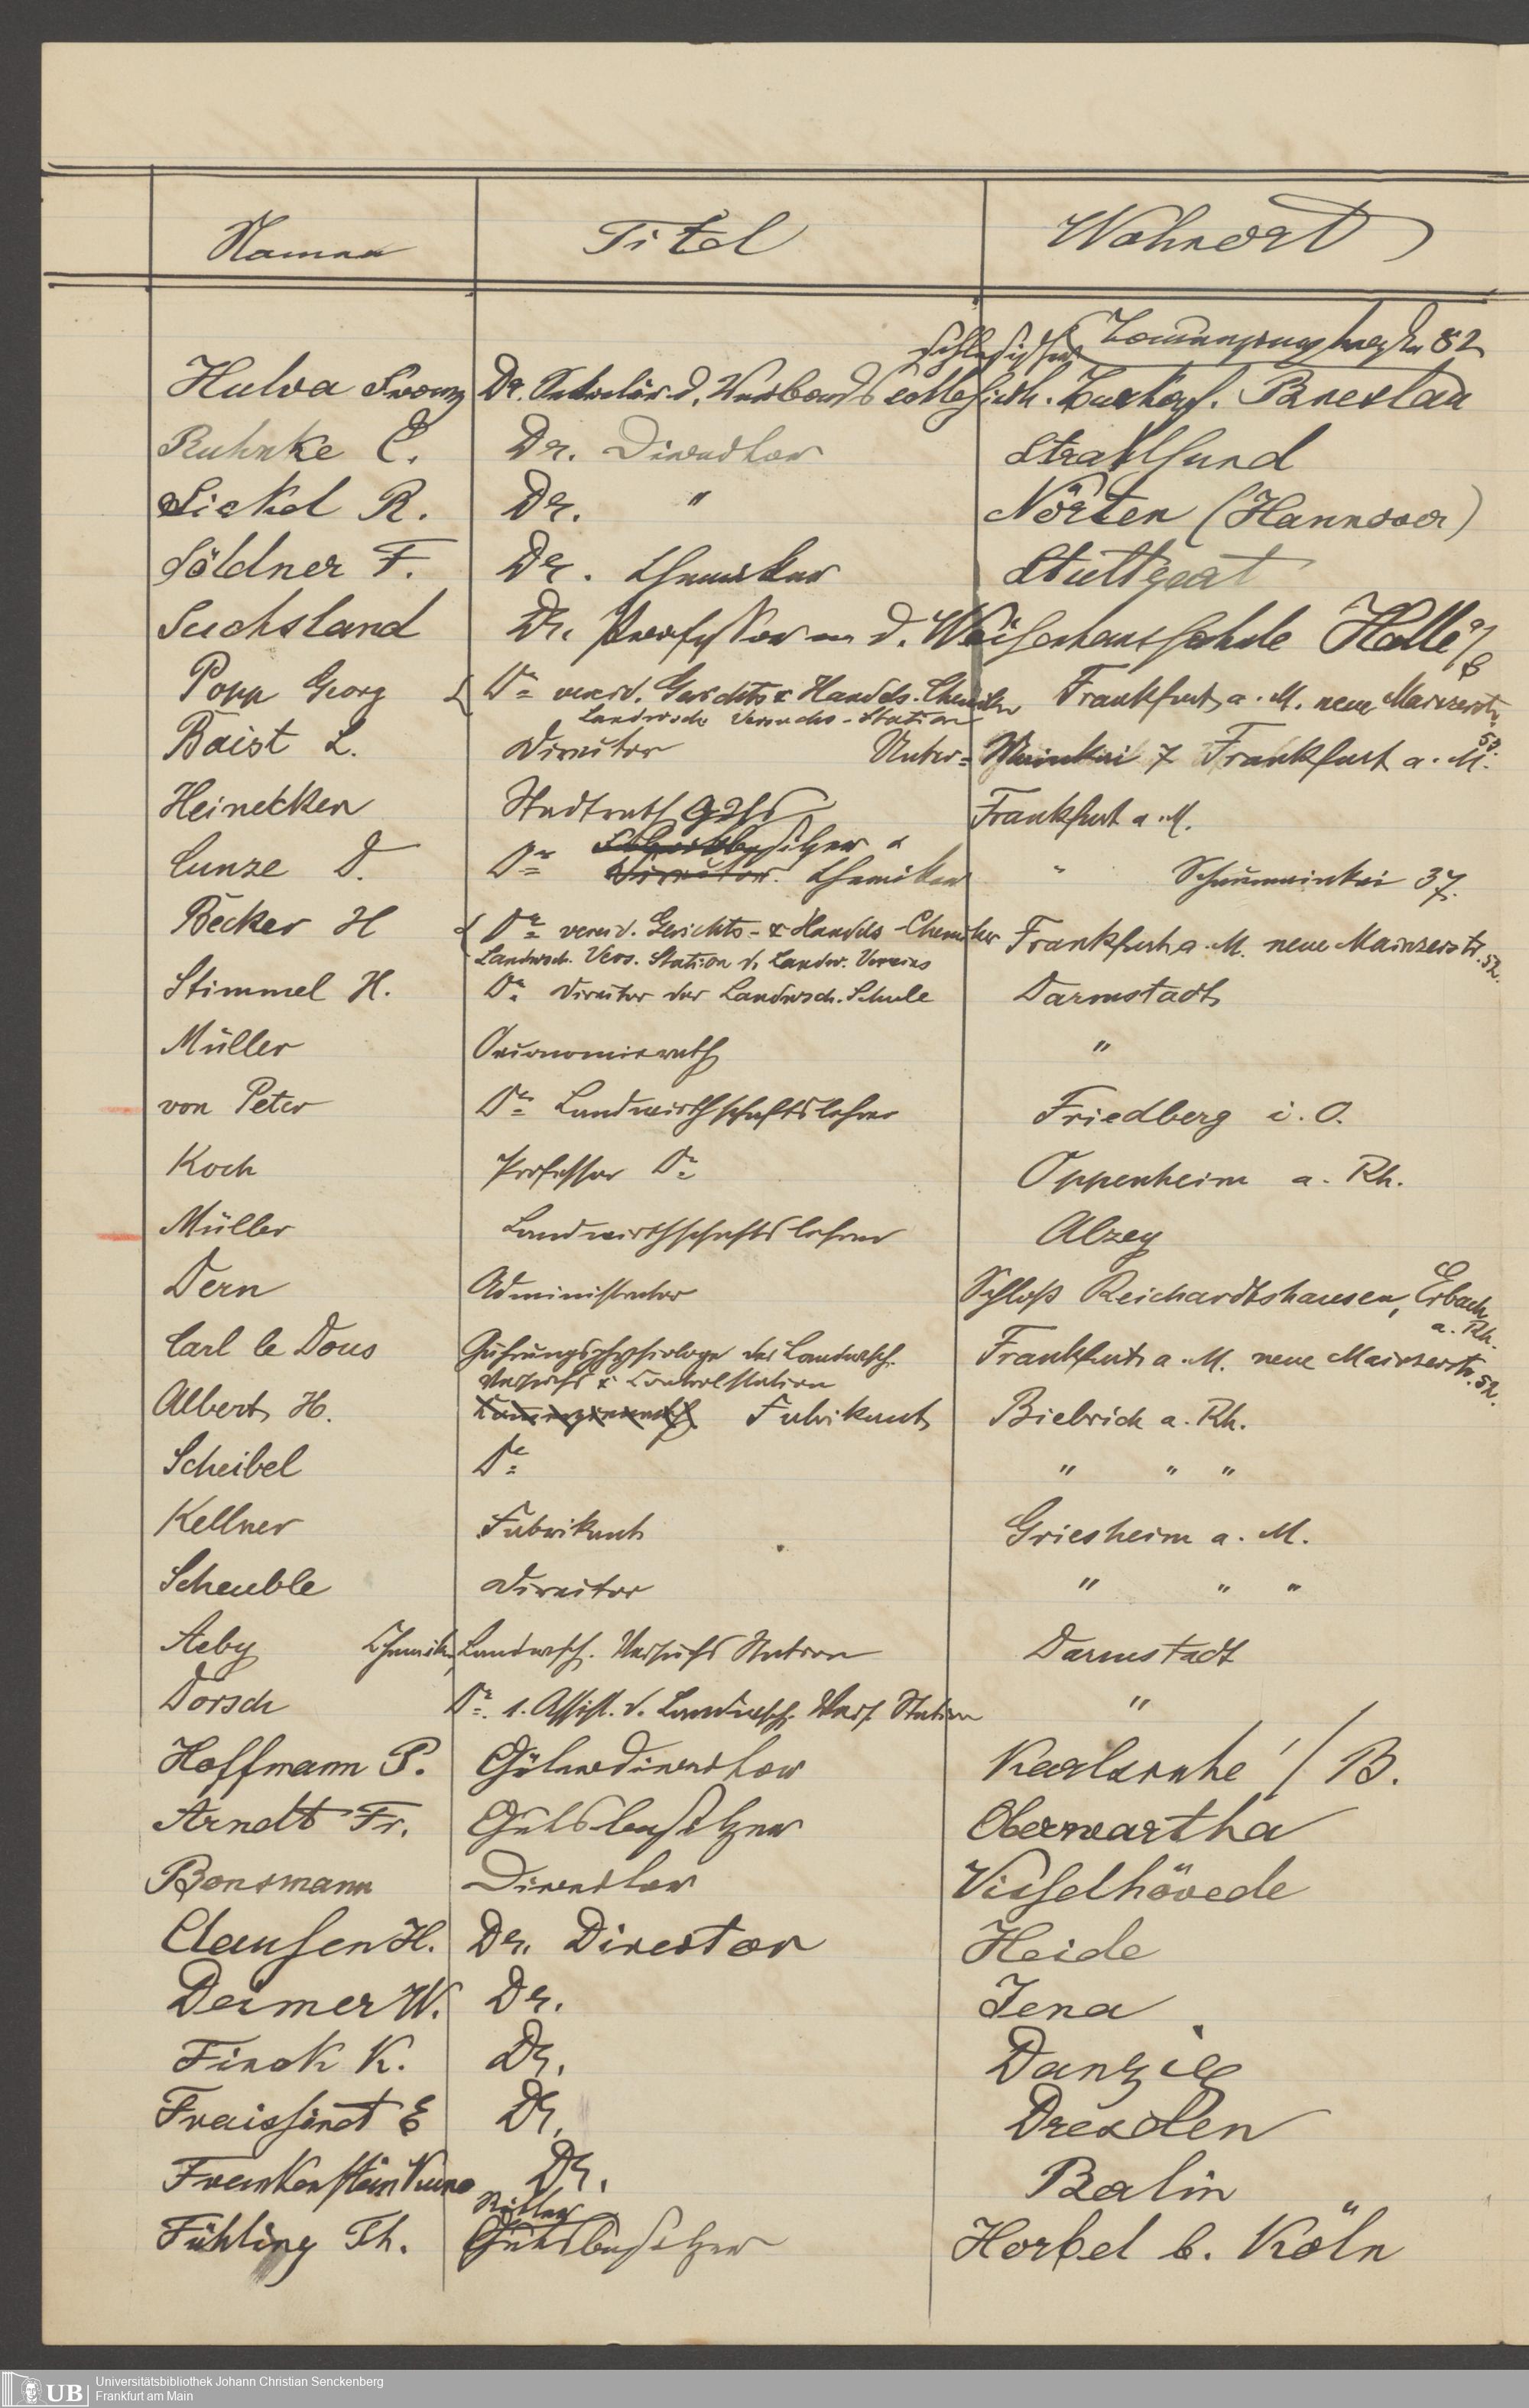 Namen Titel Wohnort
82
Hulva Franz Dr. Sekretär d. Verbands Breslau
Ruhnke E. Dr. Direcktor Stralsund
Sickel R. Dr. " Nörten (Hannover)
Söldner F. Dr. Chemiker Stuttgart
Suchsland Dr. Professor an d. Waisenhausschule Halle a/S
Popp Georg Dr vereid. Gerichts & Handels-Chemiker Frankfurt a. M. neue Mainzerstr.
Landwsch Versuchs-Station
Baist L. Director Unter-Mainkai 7 Frankfurt a. M.
Heinecken Stadtrath Frankfurt a. M.
Cunze D. Dr Chemiker " Schaumainkai 37.
Becker H Dr vereid. Gerichts- & Handels-Chemiker Frankfurt a. M. neue Mainzerstr. 52.
Landwsch. Vers. Station d. Landw. Vereins
Stimmel H. Dr Director der Landwsch. Schule Darmstadt
Müller Oeconomierath "
von Peter Dr Landwirthschaftslehrer Friedberg i. O.
Koch Professor Dr Oppenheim a. Rh.
Müller Landwirthschaftslehrer Alzey
Dern Administrator Schloß Reichardtshausen, Erbach
a. Rh.
Carl le Dous Gährungsphysiologe der Landwsch. Frankfurt a. M. neue Mainzerstr. 52.
Versuchs & Controlstation
Albert H. Commerzienrath Fabrikant Biebrich a. Rh.
Scheibel Dr " " "
Kellner Fabrikant Griesheim a. M.
Scheuble Director " " "
Aeby Chemiker Landwsch. Versuchs Station Darmstadt
Dorsch Dr. 1. Assist. d. Landwsch. Vers. Station "
Hoffmann P. Güterdirecktor Karlsruhe i/B.
Arndt Fr. Gutsbesitzer Oberwartha
Bensmann Direcktor Visselhövede
Clausen H. Dr. Director Heide
Detmer W. Dr. Jena
Finck K. Dr. Danzig
Fraissinet E Dr. Dresden
Frankenstein Kuno Dr. Berlin
Ritter
Fühling Th. Gutsbesitzer Horbel b. Köln
UB Universitätsbibliothek Johann Christian Senckenberg
Frankfurt am Main